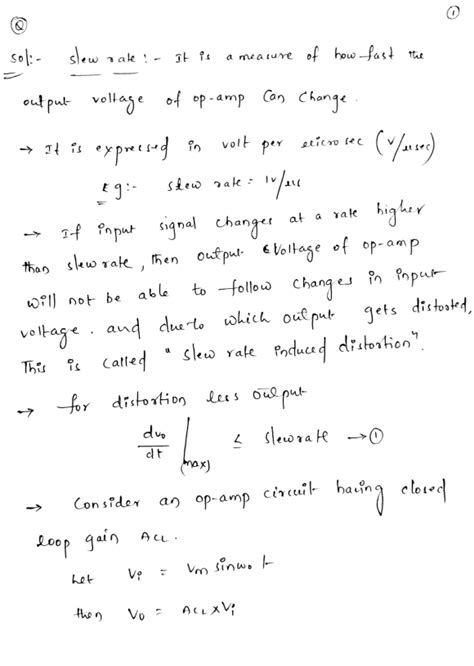 ①
Q
Sol:- slew rate :- It is a measure of how fast the
output voltage of op-amp Can Change.
→ It is expressed in volt per microsec (V/usec)
Eg:- slew rate = 1V/us
→ If input signal changes at a rate higher
than slew rate, then output voltage of op-amp
will not be able to follow changes in input
voltage. and due to which output gets distorted,
This is called "slew rate induced distortion".
→ for distortion less output
dvo/dt |(max) ≤ slew rate → ①
→ Consider an op-amp circuit having closed
loop gain ACL.
Let Vi = Vm sinwot
then Vo = ACL x Vi